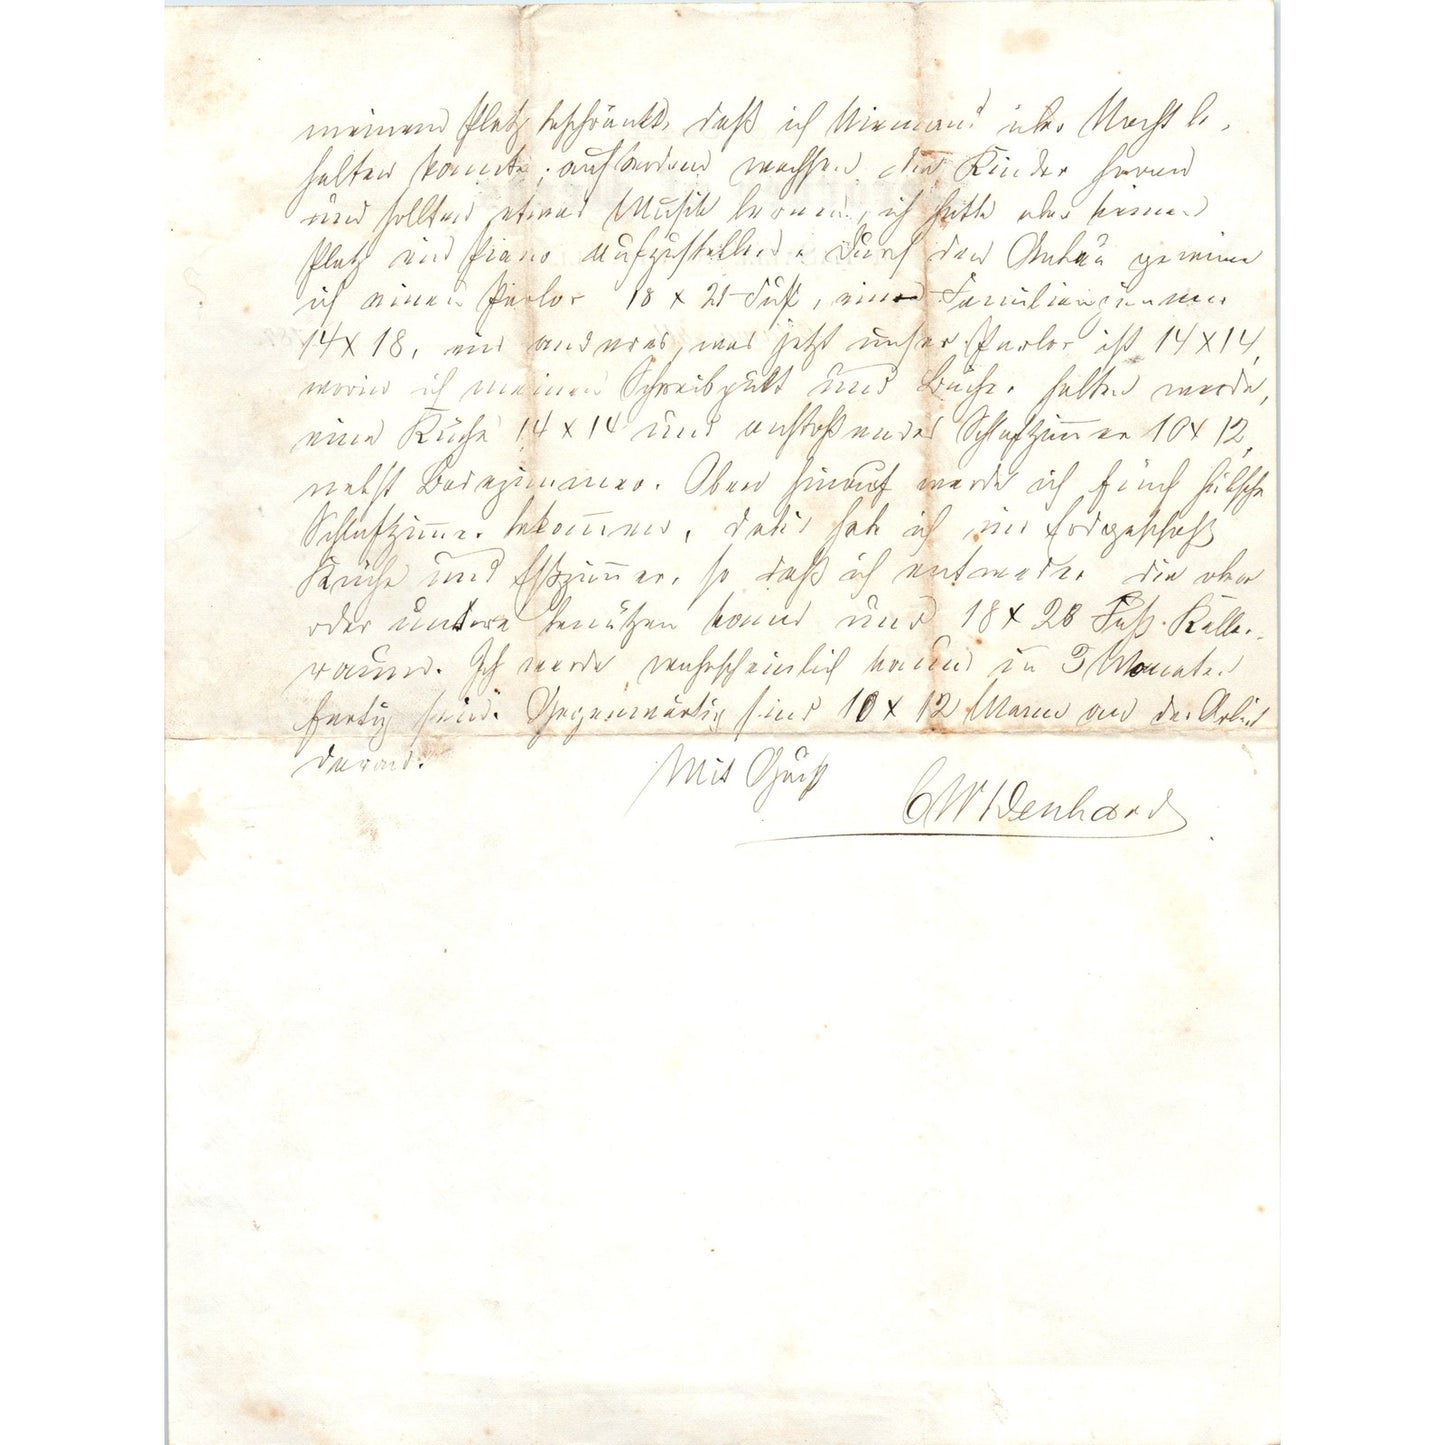 meinem Platz beschränkt, daß ich Niemand über Nacht be-
halten konnte; außerdem wachsen die Kinder heran
und sollten etwas Musik lernen, ich hatte aber keinen
Platz ein Piano aufzustellen. Durch den Anbau gewinne
ich einen Parlor 18 x 21 Fuß, einen Familienzimmer
14 x 18, ein anderes, was jetzt unser Parlor ist 14 x 14,
worin ich meinen Schreibpult und Bücher halten werde,
eine Küche 14 x 14 und anstoßendes Schlafzimmer 10 x 12,
nebst Badezimmer. Oben hinauf werde ich fünf hübsche
Schlafzimmer bekommen, dabei habe ich im Erdgeschoß
Küche und Eßzimmer, so daß ich entweder die obere
oder untere benützen kann und 18 x 28 Fuß Keller-
raum. Ich werde wahrscheinlich kaum in 3 Monaten
fertig sein. Gegenwärtig sind 10 x 12 Mann an der Arbeit
daran.
Mit Gruß
CWDenhard